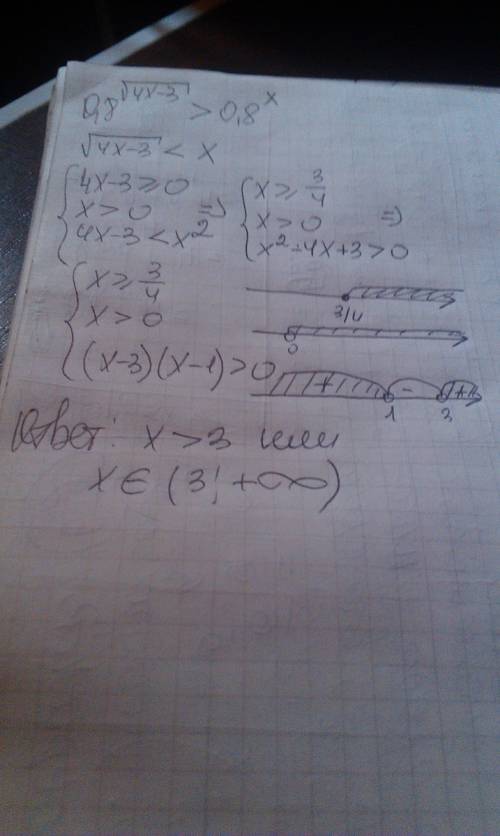 0,8^√(4x-3) > 0,8^x
√(4x-3) < x
{ 4x-3 ≥ 0
x > 0
4x-3 < x² ⇒
{ x ≥ 3/4
x > 0
x²-4x+3 > 0 ⇒
{ x ≥ 3/4
x > 0
(x-3)(x-1) > 0
3/4
0
+ - +
1 3
Ответ: x > 3 или
x ∈ (3; +∞)